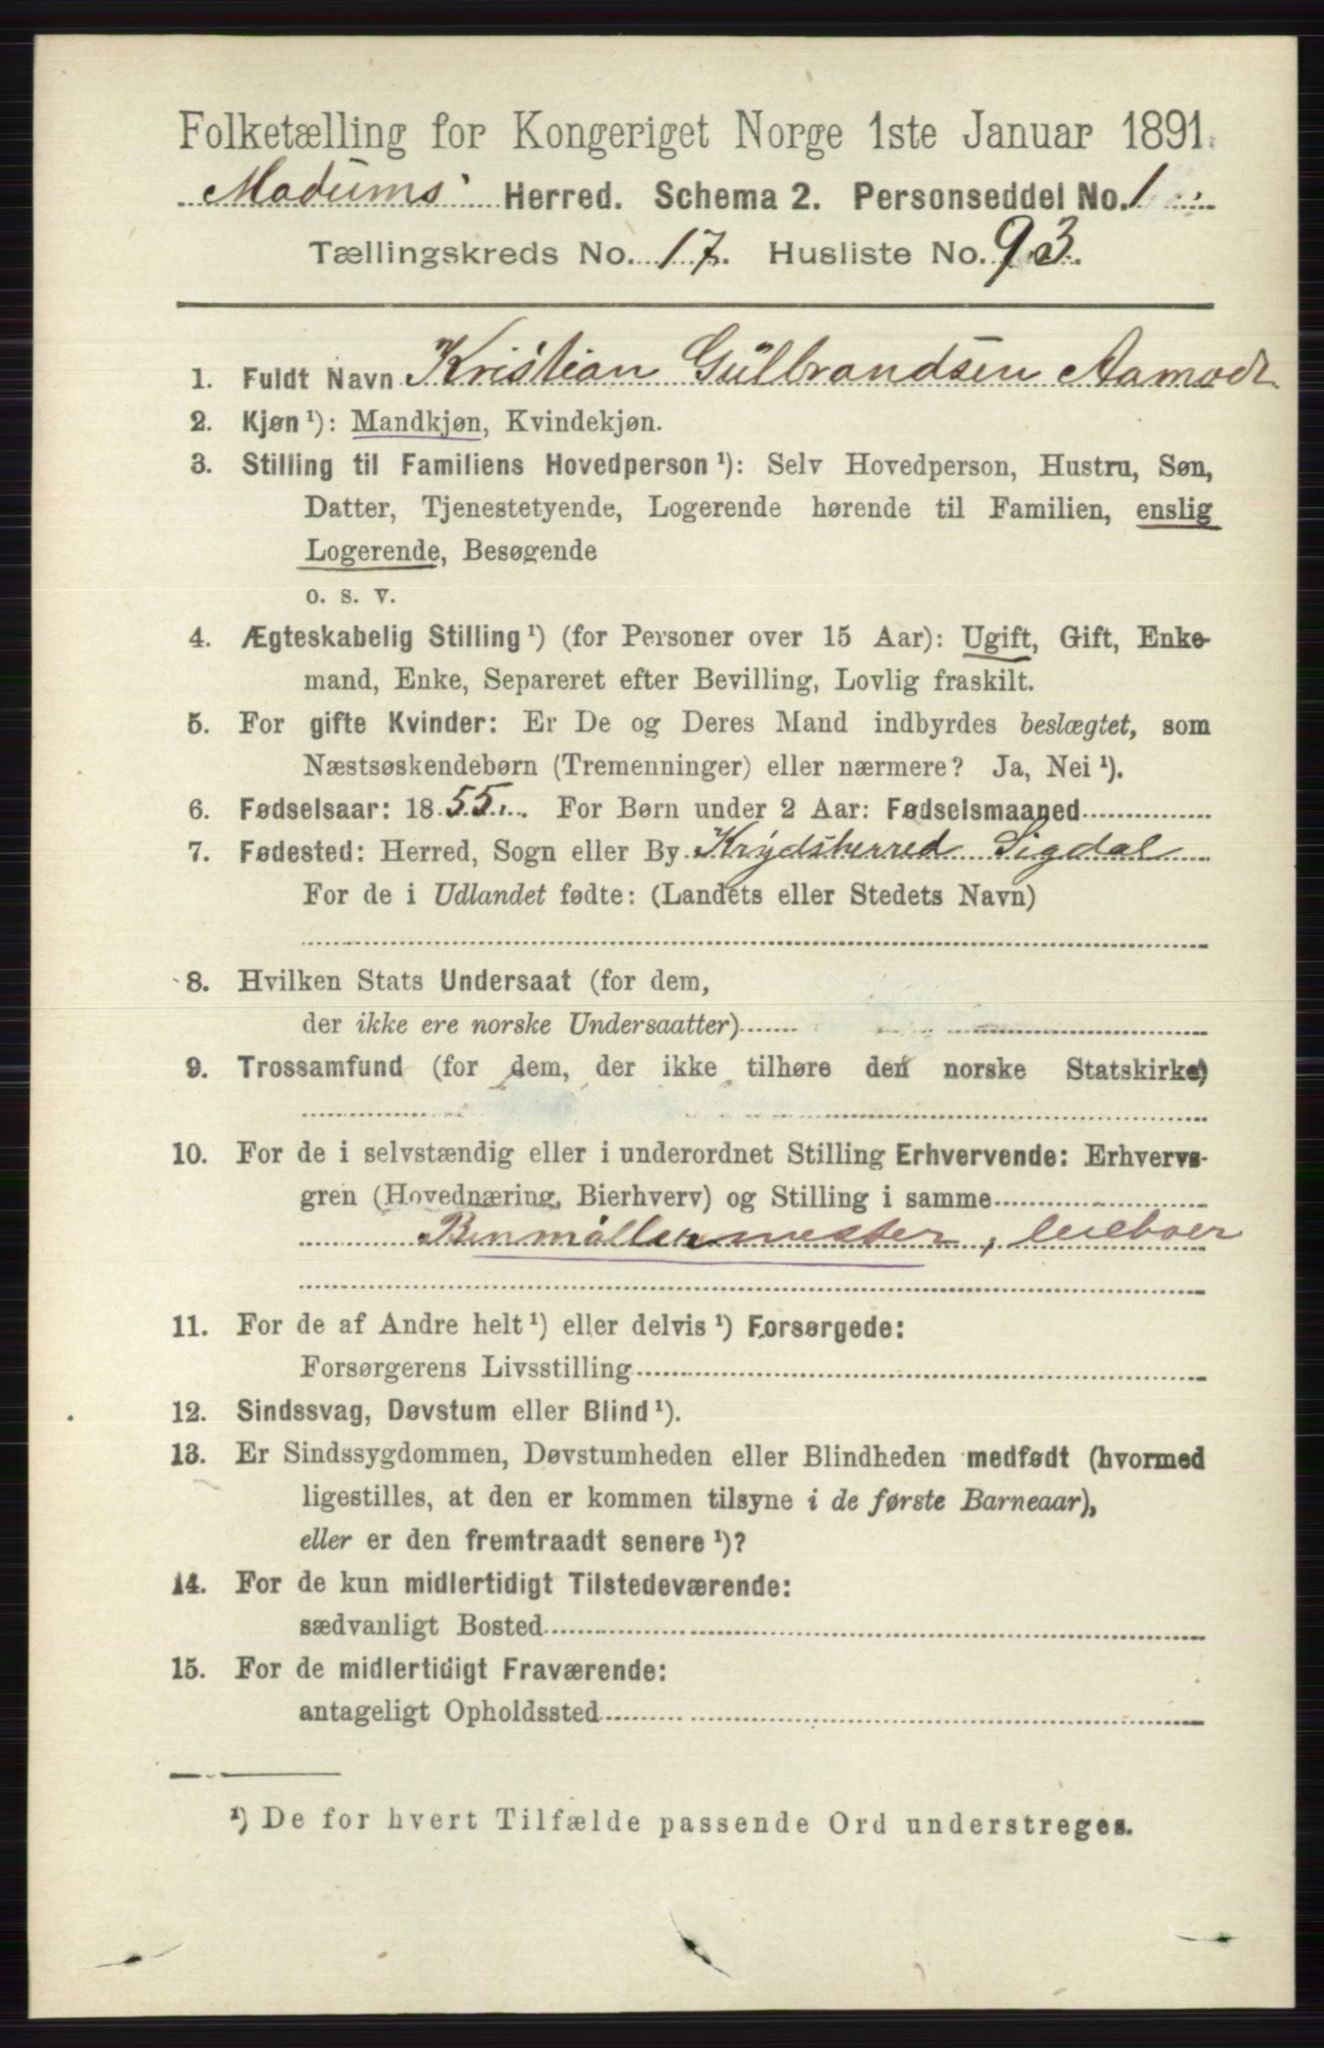 Folketælling for Kongeriget Norge 1ste Januar 1891.
Modums Herred. Schema 2. Personseddel No. 1
Tællingskreds No. 17. Husliste No. 93.
1. Fuldt Navn Kristian Gülbrandsen Aamodt
2. Kjøn ¹): Mandkjøn, Kvindekjøn.
3. Stilling til Familiens Hovedperson ¹): Selv Hovedperson, Hustru, Søn,
Datter, Tjenestetyende, Logerende hørende til Familien, enslig
Logerende, Besøgende
o. s. v.
4. Ægteskabelig Stilling ¹) (for Personer over 15 Aar): Ugift, Gift, Enke-
mand, Enke, Separeret efter Bevilling, Lovlig fraskilt.
5. For gifte Kvinder: Er De og Deres Mand indbyrdes beslægtet, som
Næstsøskendebørn (Tremenninger) eller nærmere? Ja, Nei ¹).
6. Fødselsaar: 1855. For Børn under 2 Aar: Fødselsmaaned
7. Fødested: Herred, Sogn eller By Krydsherred Sigdal
For de i Udlandet fødte: (Landets eller Stedets Navn)
8. Hvilken Stats Undersaat (for dem,
der ikke ere norske Undersaatter)
9. Trossamfund (for dem, der ikke tilhøre den norske Statskirke)
10. For de i selvstændig eller i underordnet Stilling Erhvervende: Erhvervs-
gren (Hovednæring, Bierhverv) og Stilling i samme
Benmøllermester, leieboer
11. For de af Andre helt ¹) eller delvis ¹) Forsørgede:
Forsørgerens Livsstilling
12. Sindssvag, Døvstum eller Blind ¹).
13. Er Sindssygdommen, Døvstumheden eller Blindheden medfødt (hvormed
ligestilles, at den er kommen tilsyne i de første Barneaar),
eller er den fremtraadt senere ¹)?
14. For de kun midlertidigt Tilstedeværende:
sædvanligt Bosted
15. For de midlertidigt Fraværende:
antageligt Opholdssted
¹) De for hvert Tilfælde passende Ord understreges.